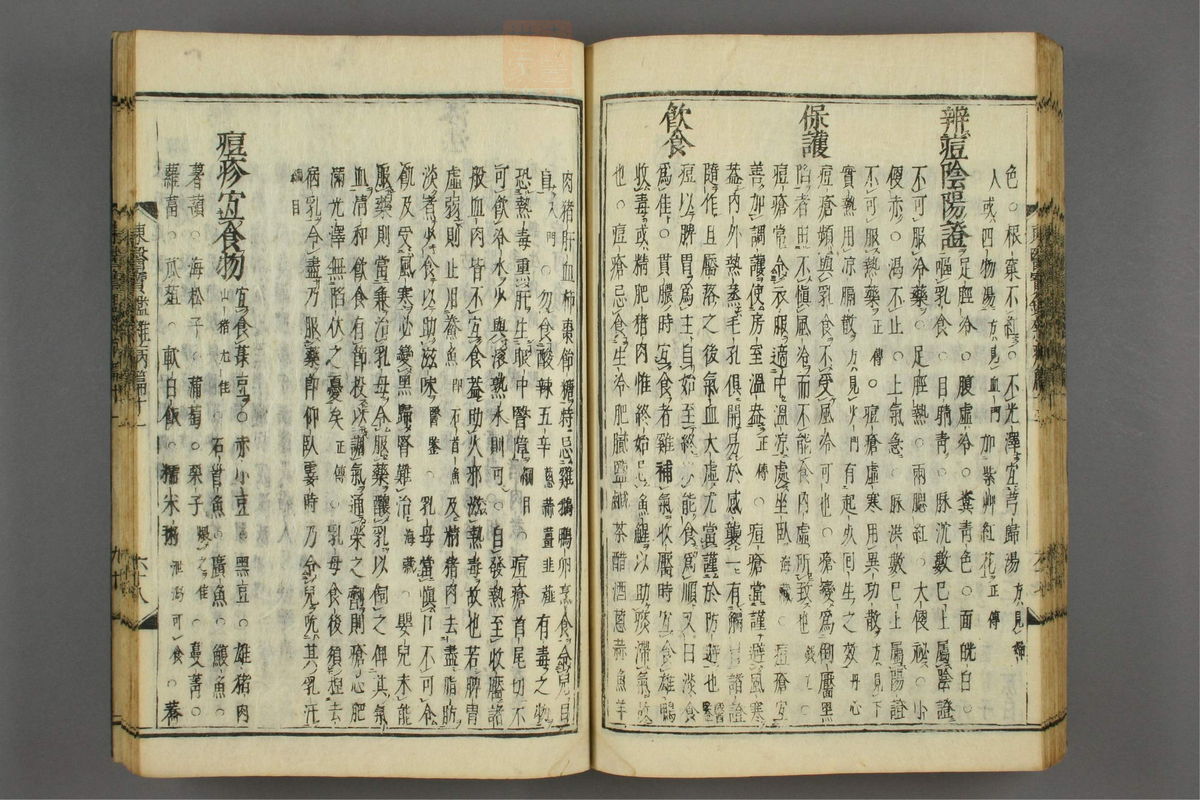 色○根窠不紅○不光澤宜芎歸湯方見婦
人或四物湯方見血門加紫草紅花正傳
辨痘陰陽證 足脛冷○腹虛冷○糞青色○面㿠白○
○嘔乳食○目睛青○脉沉數已上屬陰證
不可服冷藥○足脛熱○兩腮紅○大便秘○小
便赤○渴不止○上氣急○脉洪數已上屬陽證
不可服熱藥正傳○痘瘡虛寒用異功散方見下
實熱用凉膈散方見火門有起死回生之效丹心
保護 痘瘡頻與乳食不受風冷可也○瘡變爲倒靨黑
陷者由不愼風冷而不能食肉虛所致也錢乙○
痘瘡常令衣服適中溫凉處坐臥海藏○痘瘡宜
善加調護使房室溫盎正傳○痘瘡當謹避風寒
盖內外熱蒸毛孔俱開易於感襲一有觸冒諸證
隨作且靨落之後氣血大虛尤當謹於防避也醫鑑
飮食 痘以脾胃爲主自始至終以能食爲順又曰淡食
爲佳○貫膿時宜食者雞補氣收靨時宜食雄鴨
收毒或精肥猪肉惟終始忌魚鰕以助痰滯氣故
也○痘瘡忌食生冷肥膩鹽鹹茶醋酒葱蒜魚羊
肉猪肝血柿棗飴糖特忌雞鵝鴨卵烹食令兒目
盲入門○勿食酸辣五辛葱蒜薑韭薤有毒之物
恐熱毒熏肝生眼中瞖膏綱目○痘瘡首尾切不
可飮冷水少與滚熱水則可○自發熱至收靨諸
般血肉皆不宜食盖助火邪滋熱毒故也若脾胃
虛弱則止用鯗魚卽石首魚及精猪肉去盡脂肪
淡煮少食以助滋味醫鑑○乳母當愼口不可食
飢及受風寒必變黑歸腎難治海藏○嬰兒未能
服藥則當兼治乳母令服藥釀乳以飼之俾其氣
血淸和飮食有節投以調氣通榮之劑則瘡心肥
滿光澤無陷伏之憂矣正傳○乳母食後須捏去
宿乳令盡乃服藥卽仰臥霎時乃令兒吮其乳汁
綱目
痘疹宜食物 宜食菉豆○赤小豆○黑豆○雄猪肉
山猪尤佳○石首魚○廣魚○鰒魚○
薯蕷○海松子○葡萄○栗子煨之佳○蔓菁○
蘿葍○瓜菹○軟白飯○糯米粥泄瀉可食○蕃
東醫寶鑑雜病篇十一 六十八